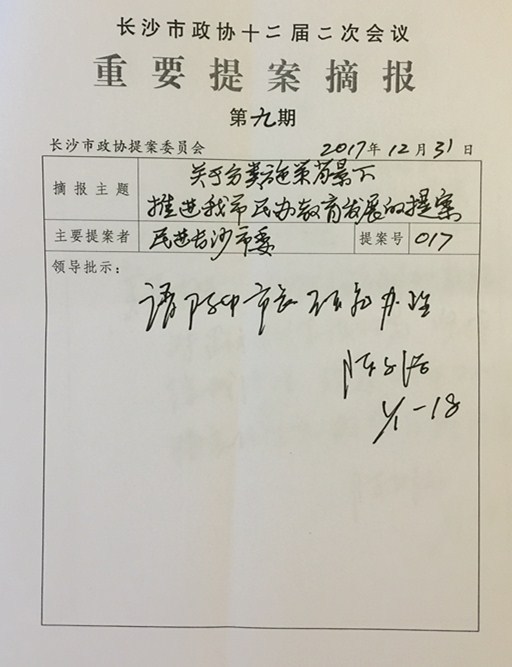 长沙市政协十二届二次会议
重要提案摘报
第九期
长沙市政协提案委员会 2017年12月31日
摘报主题 关于分类施策背景下
推进我市民办教育发展的提案
主要提案者 民进长沙市委 提案号 017
领导批示：
请 中市长 办理
1/1-18